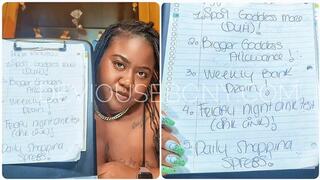 Spoil Goddess more
(Duh)!
Bigger Goddess
Allowance!
Weekly Bank
Drain!
Friday night
Daily Shopping
SPREES!
1. Spoil Goddess more
(Duh)!
2. Bigger Goddess
Allowance!
3. Weekly Bank
Drain!
4. Friday night
5. Daily Shopping
SPREES!